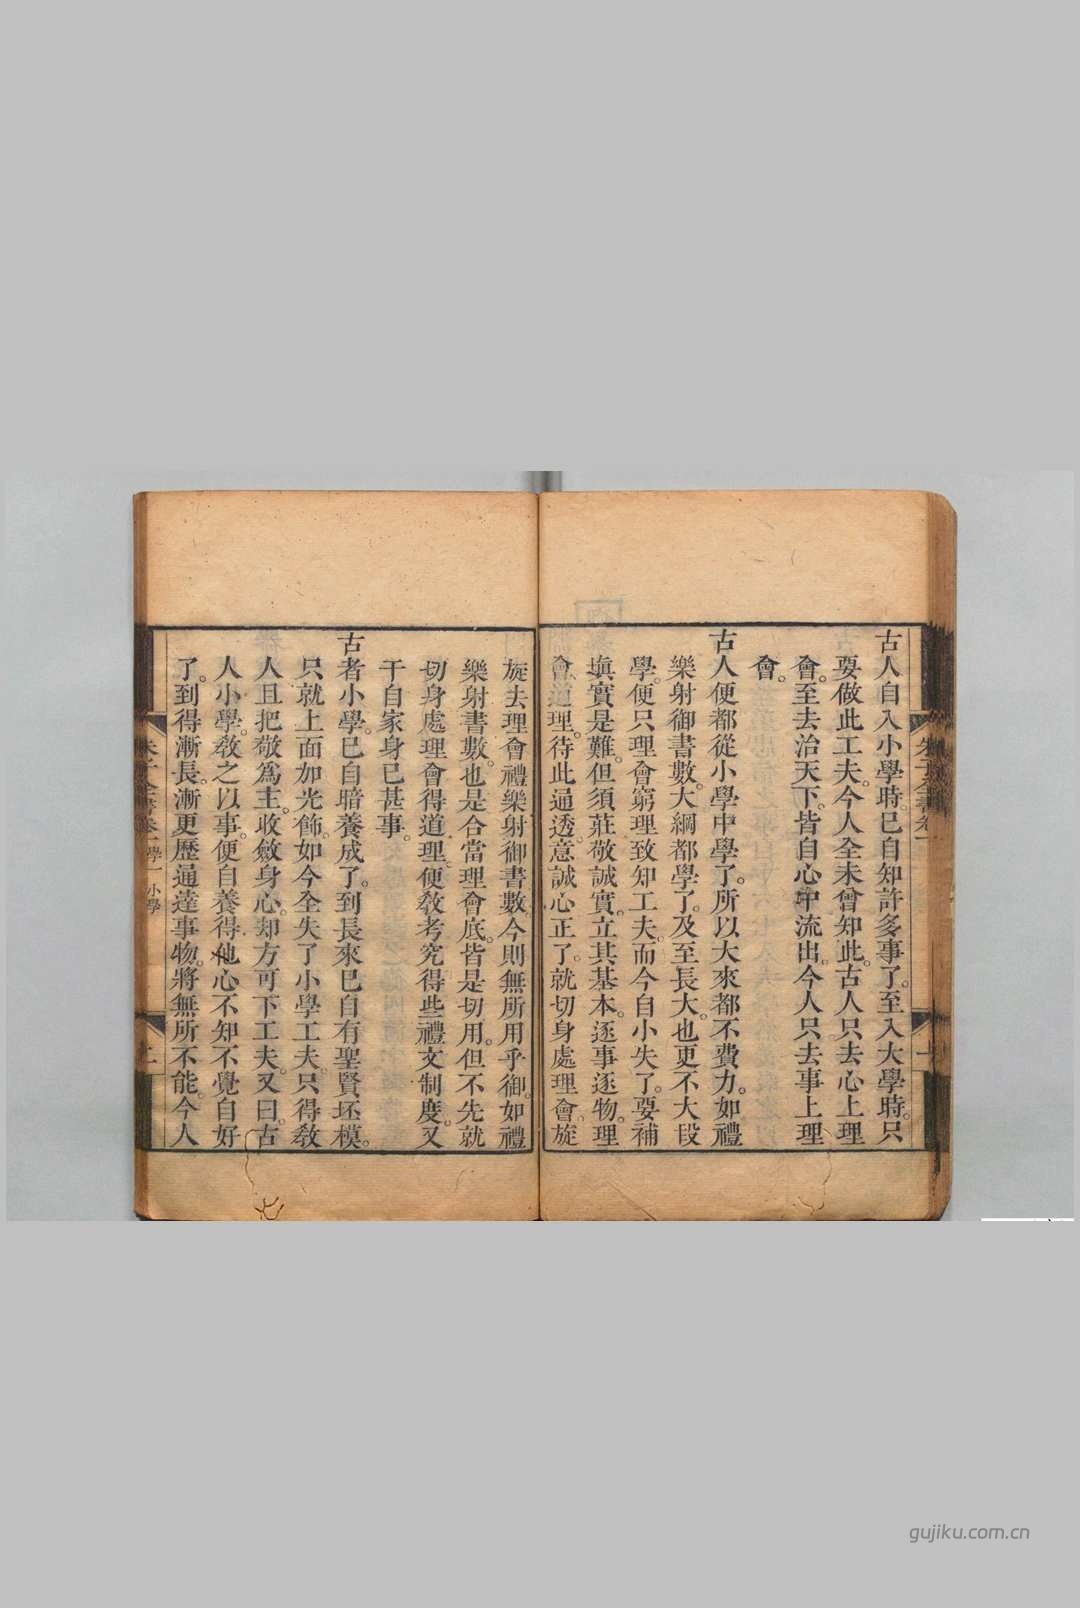 古人自入小學時。已自知許多事了。至入大學時。只
要做此工夫。今人全未曾知此。古人只去心上理
會。至去治天下。皆自心中流出。今人只去事上理
會。
古人便都從小學中學了。所以大來都不費力。如禮
樂射御書數。大綱都學了。及至長大。也更不大段
學。便只理會窮理致知工夫。而今自小失了。要補
塡實是難。但須莊敬誠實。立其基本。逐事逐物。理
會道理。待此通透。意誠心正了。就切身處理會。旋
旋去理會禮樂射御書數。今則無所用乎御。如禮
樂射書數。也是合當理會底。皆是切用。但不先就
切身處理會得道理。便敎考究得些禮文制度。又
干自家身己甚事。
古者小學。已自暗養成了。到長來已自有聖賢坯模。
只就上面加光飾。如今全失了小學工夫。只得敎
人且把敬爲主。收斂身心。却方可下工夫。又曰。古
人小學。敎之以事。便自養得他心。不知不覺自好
了。到得漸長。漸更歷通達事物。將無所不能。今人
朱子全書卷一 學一 小學
二
gujiku.com.cn